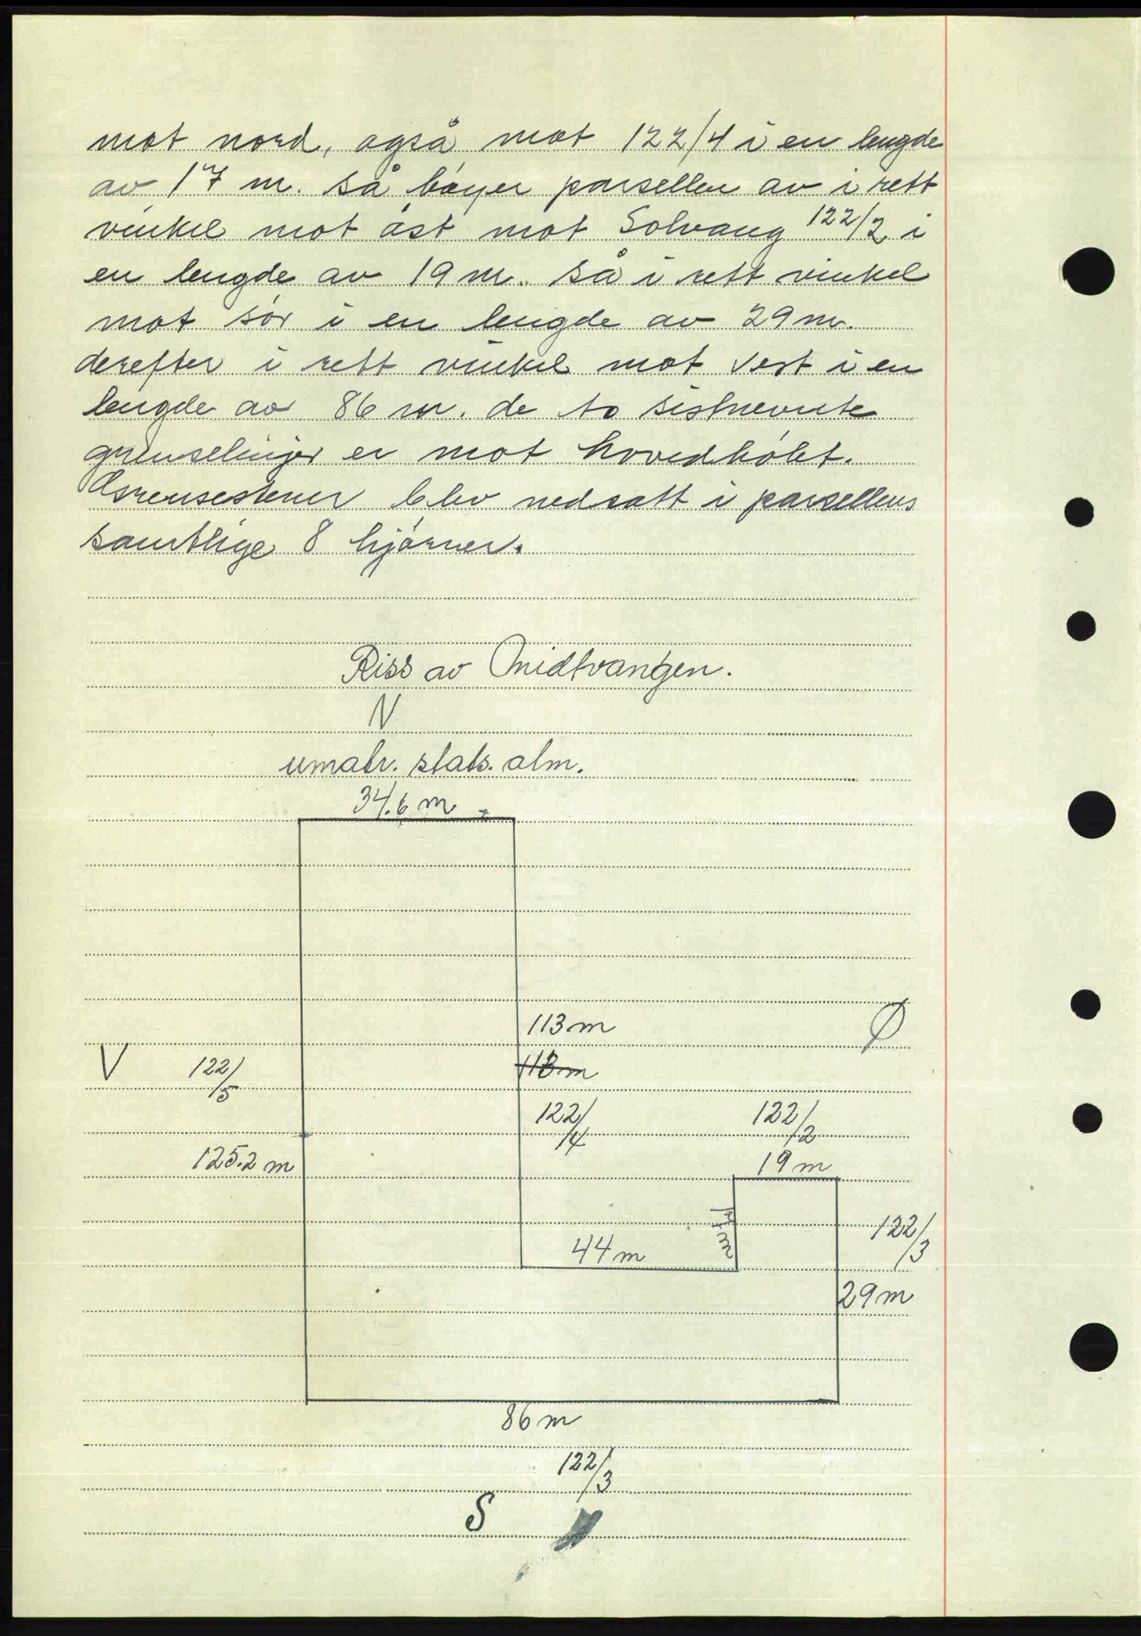 mot nord, også mot 122/4 i en lengde
av 17 m. Så bøyer parsellen av i rett
vinkel mot øst mot Solvang 122/2 i
en lengde av 19 m. Så i rett vinkel
mot sør i en lengde av 29 m.
derefter i rett vinkel mot vest i en
lengde av 86 m. de to sistnevnte
grenselinjer er mot hovedbølet.
Grensestener blev nedsatt i parsellens
samtlige 8 hjørner.
Riss av Midtvangen.
N
umatr. stats. alm.
34.6 m
113 m
Ø
V
122/5
113 m
122/4
122/2
125.2 m
19 m
17 m
122/3
44 m
29 m
86 m
122/3
S